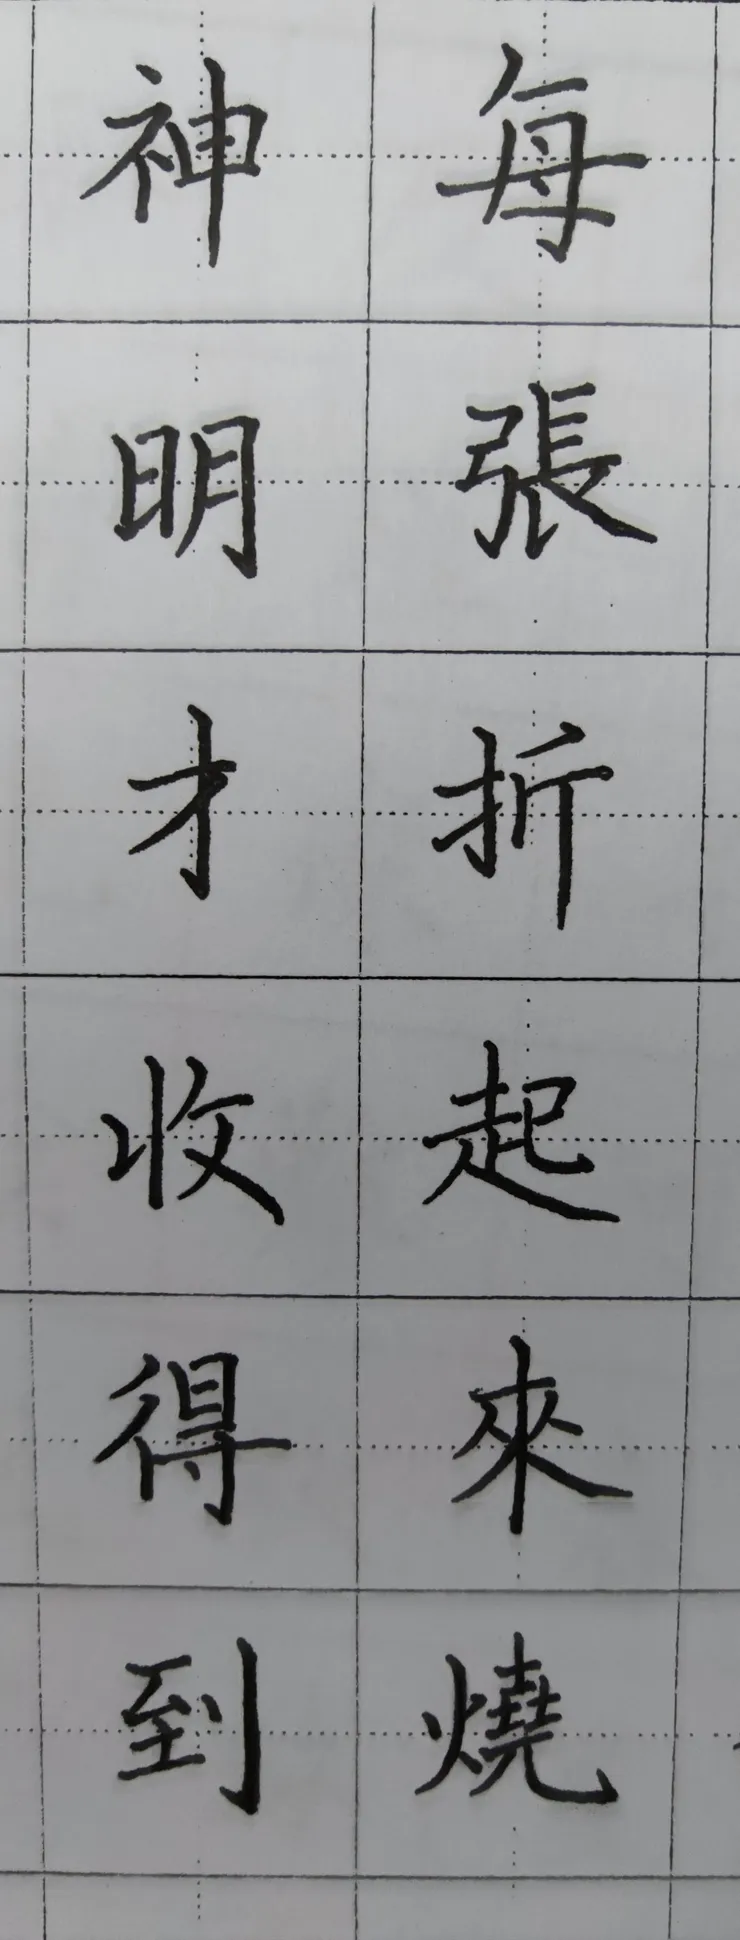 每張折起來燒
神明才收得到